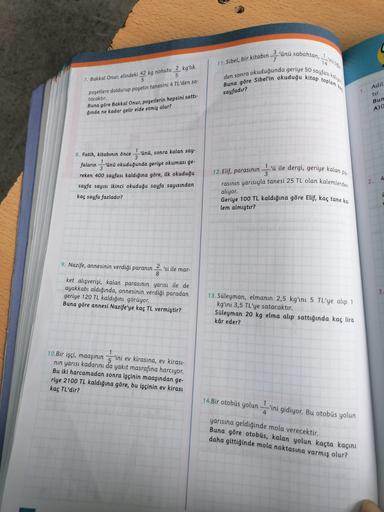 7. Bakkal Onur, elindeki 42/5 kg nohutu 2/5 kg'lık
poşetlere doldurup poşetin tanesini 4 TL'den sa-
tacaktır.
Buna göre Bakkal Onur, poşetlerin hepsini sattı-
ğında ne kadar gelir elde etmiş olur?
8. Fatih, kitabının önce 1/3 'ünü, sonra kalan say-
faların 1/3 'ünü okuduğunda geriye okuması ge-
reken 400 sayfası kaldığına göre, ilk okuduğu
sayfa sayısı ikinci okuduğu sayfa sayısından
kaç sayfa fazladır?
9. Nazife, annesinin verdiği paranın 2/8 'si ile mar-
ket alışverişi, kalan parasının yarısı ile de
ayakkabı aldığında, annesinin verdiği paradan
geriye 120 TL kaldığını görüyor.
Buna göre annesi Nazife'ye kaç TL vermiştir?
10.Bir işçi, maaşının 1/5 'ini ev kirasına, ev kirası-
nın yarısı kadarını da yakıt masrafına harcıyor.
Bu iki harcamadan sonra işçinin maaşından ge-
riye 2100 TL kaldığına göre, bu işçinin ev kirası
kaç TL'dir?
11. Sibel, bir kitabın 3/7 'ünü sabahtan, 1/14
den sonra okuduğunda geriye 50 sayfası
Buna göre Sibel'in okuduğu kitap toplam
sayfadır?
12.Elif, parasının 1/3 'ü ile dergi, geriye kalan
rasının yarısıyla tanesi 25 TL olan kalemlerden
alıyor.
Geriye 100 TL kaldığına göre Elif, kaç tane ka-
lem almıştır?
13.Süleyman, elmanın 2,5 kg'ını 5 TL'ye alıp 1
kg'ını 3,5 TL'ye satacaktır.
Süleyman 20 kg elma alıp sattığında kaç lira
kâr eder?
14.Bir otobüs yolun 1/4 'ini gidiyor. Bu otobüs yolun
yarısına geldiğinde mola verecektir.
Buna göre otobüs, kalan yolun kaçta kaçını
daha gittiğinde mola noktasına varmış olur?
1. Adil,
Bun
2.
3.